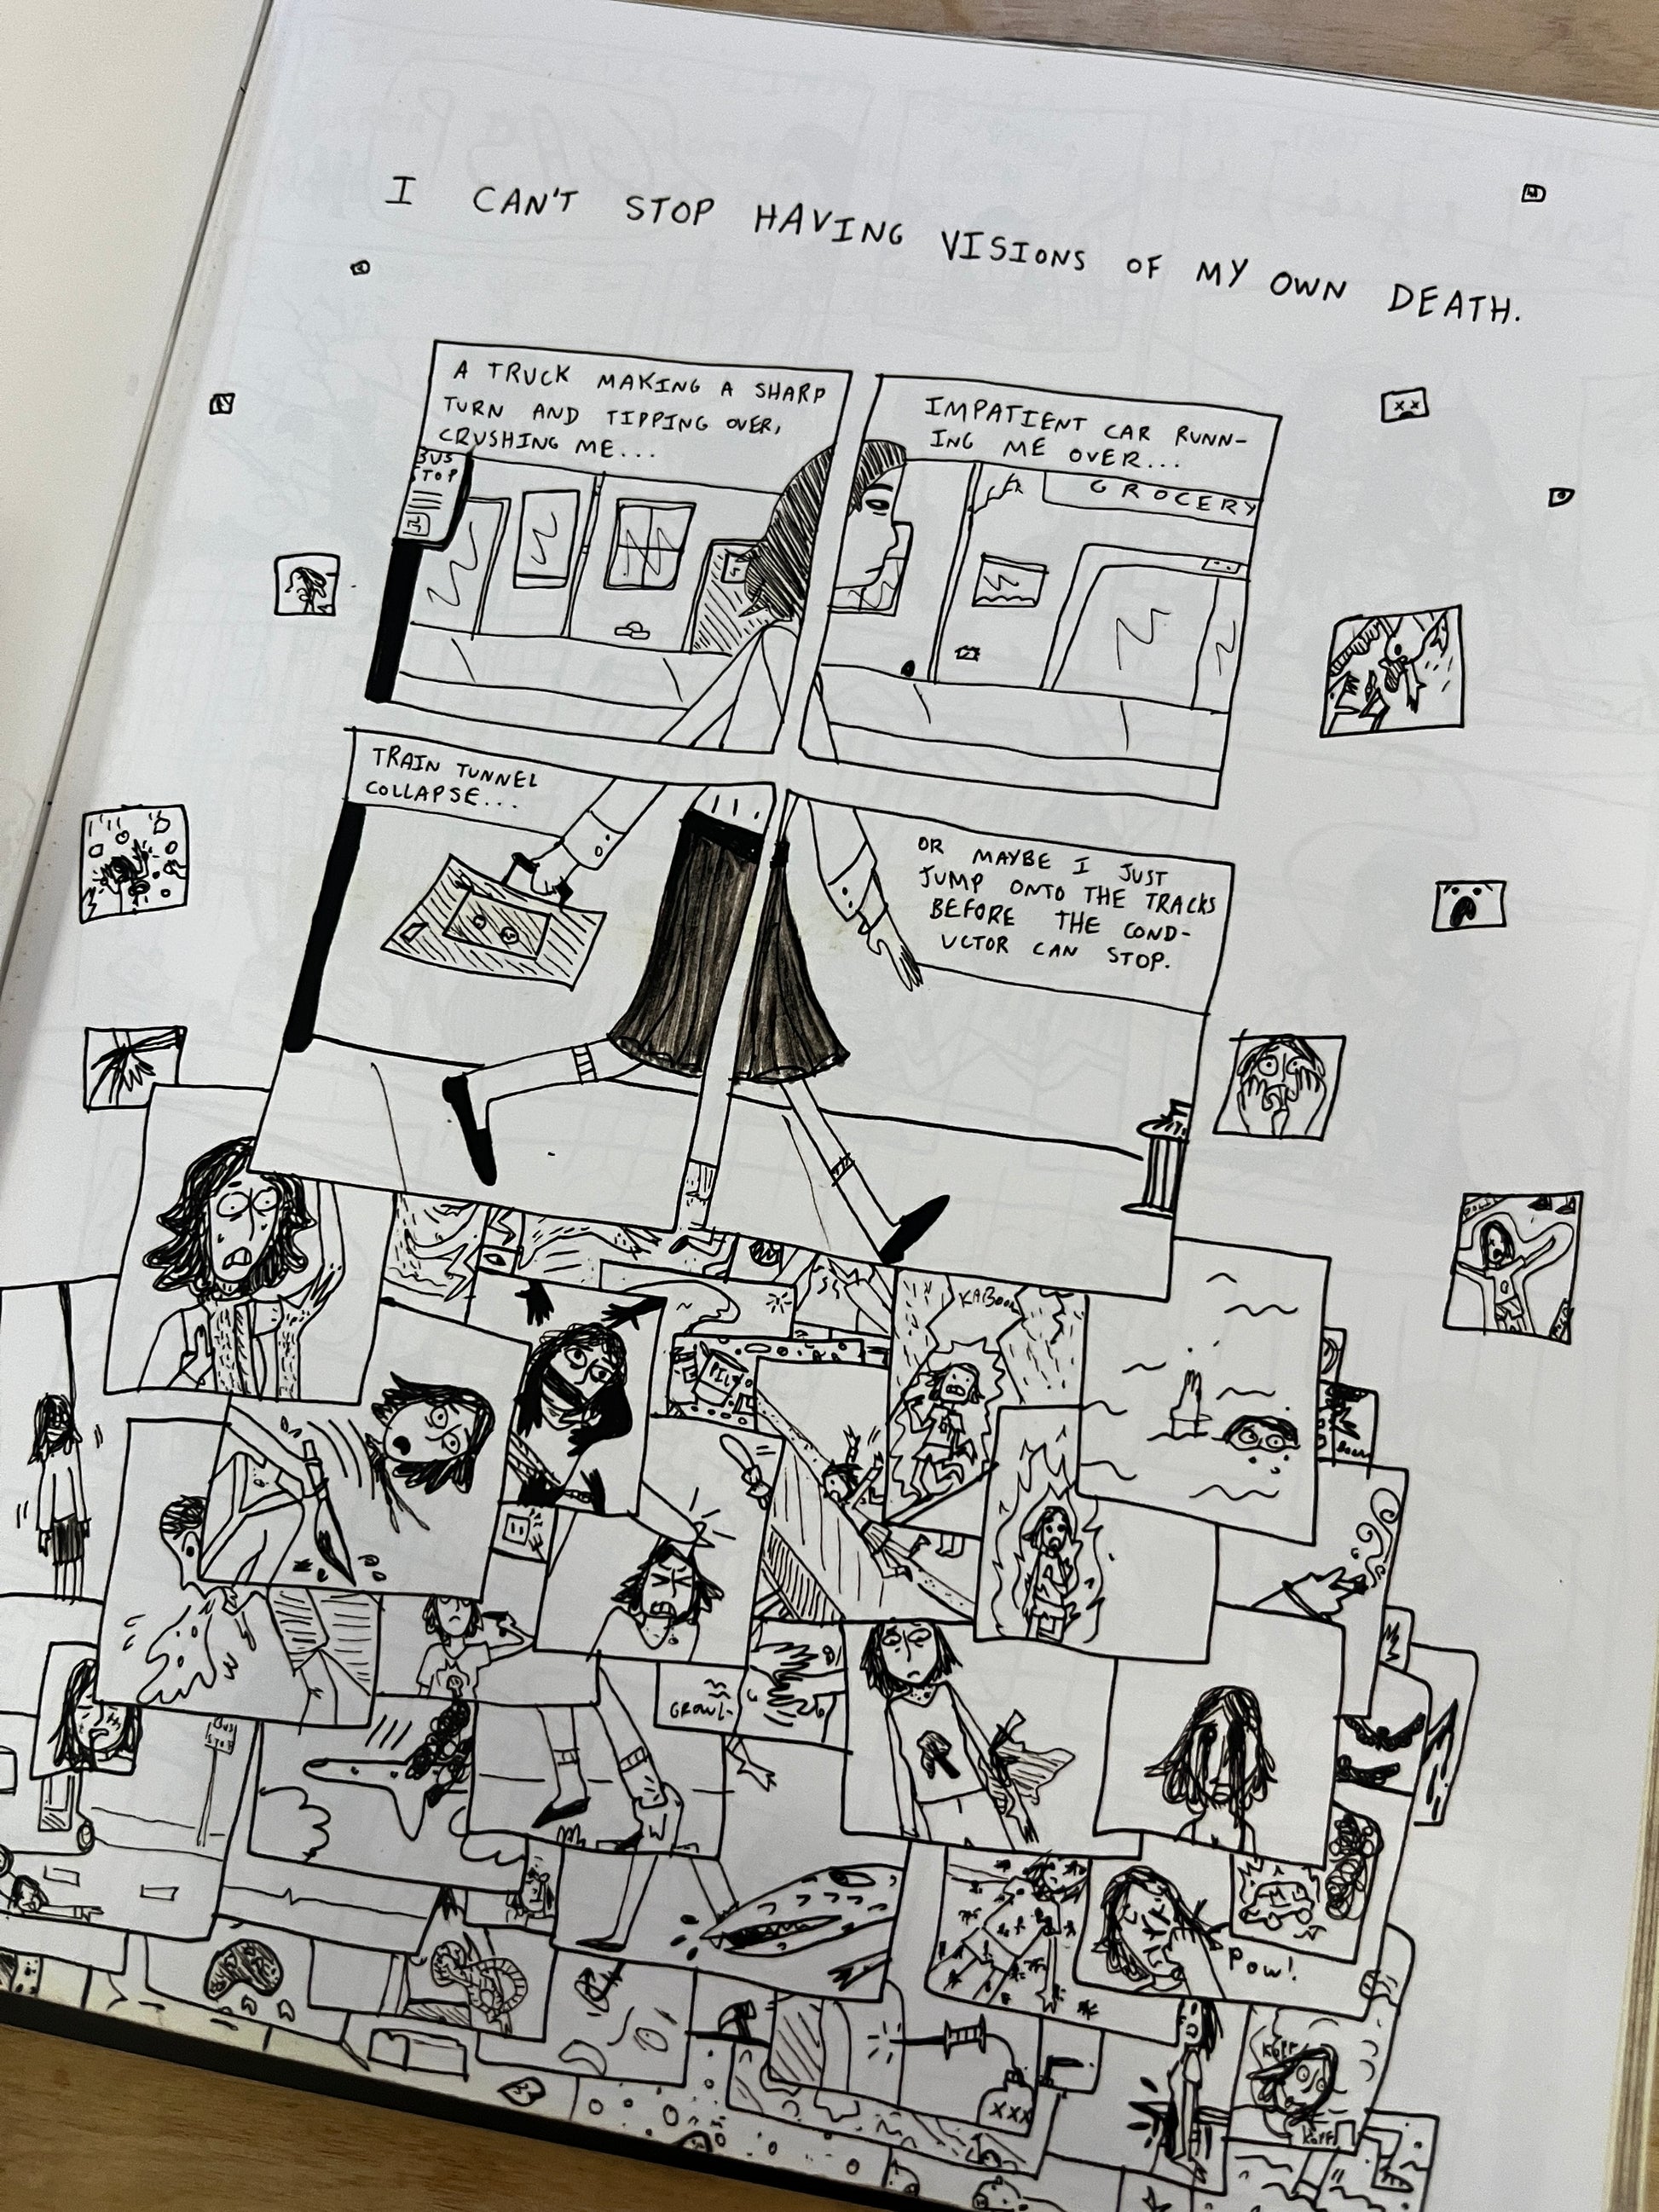 I CAN'T STOP HAVING VISIONS OF MY OWN DEATH.
A TRUCK MAKING A SHARP
TURN AND TIPPING OVER,
CRUSHING ME...
BUS
STOP
IMPATIENT CAR RUNN-
ING ME OVER...
GROCERY
TRAIN TUNNEL
COLLAPSE...
OR MAYBE I JUST
JUMP ONTO THE TRACKS
BEFORE THE COND-
UCTOR CAN STOP.
KABOOM
GROWL
BUS
STOP
POW!
XXX
KOFF
KOFF